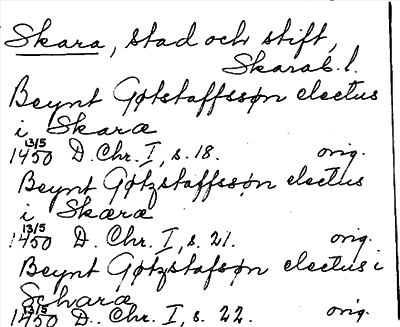 Skara, stad och stift,
Skarab. l.
Beynt Gøtstaffssøn electus
i Skaræ
13/5 1450 D. Chr. I, s. 18. orig.
Beynt Gøtzstaffssøn electus
i Skæræ
13/5 1450 D. Chr. I, s. 21. orig.
Beynt Gøtzstafsøn electus i
Scharæ
13/5 1450 D. Chr. I, s. 22. orig.